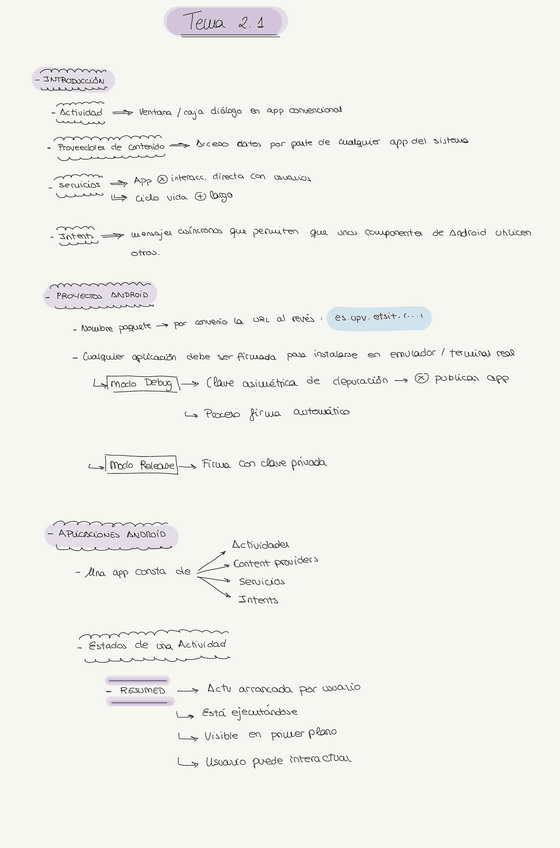 Tema 2.1
- INTRODUCCIÓN
- Actividad ⟹ Ventana / caja diálogo en app convencional
- Proveedores de contenido ⟹ Acceso datos por parte de cualquier app del sistema
- Servicios ⟹ App ⊗ interacc. directa con usuarios
↳ Ciclo vida ⊕ largo
- Intents ⟹ mensajes asíncronos que permiten que unos componentes de Android utilicen
otros.
- PROYECTOS ANDROID
- Nombre paquete → por convenio la URL al revés : es.upv.etsit.(...)
- Cualquier aplicación debe ser firmada para instalarse en emulador / terminal real
↳ Modo Debug → Clave asimétrica de depuración → ⊗ publicar app
↳ Proceso firma automático
↳ Modo Release → Firma con clave privada
- APLICACIONES ANDROID
Actividades
Content providers
- Una app consta de
Servicios
Intents
- Estados de una Actividad
- RESUMED → Actv arrancada por usuario
↳ Está ejecutándose
↳ Visible en primer plano
↳ Usuario puede interactuar